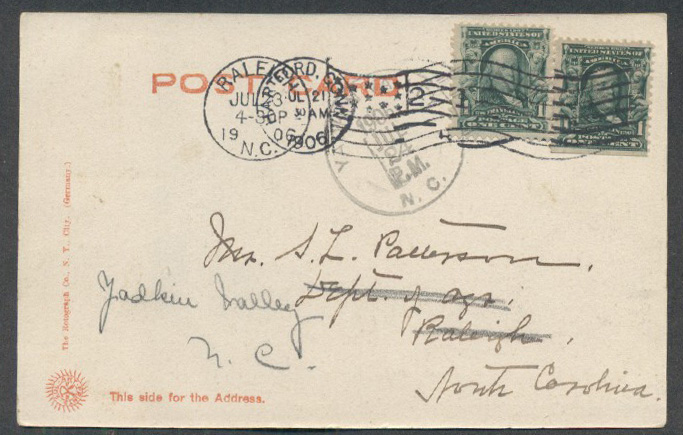 POST CARD
RALEIGH
JUL 23
4-30P
19 06
N.C.
HARTFORD, CONN.
JUL 21
30 AM
1906
2
1906
JUL
24
P.M.
N. C.
UNITED STATES OF
1 POSTAGE 1
ONE CENT
UNITED STATES OF
POSTAGE 1
ONE CENT
Mr. S. L. Patterson,
Dept. of Agr.
Raleigh,
North Carolina.
Yadkin Valley
N. C.
The Rotograph Co., N. Y. City. (Germany.)
This side for the Address.